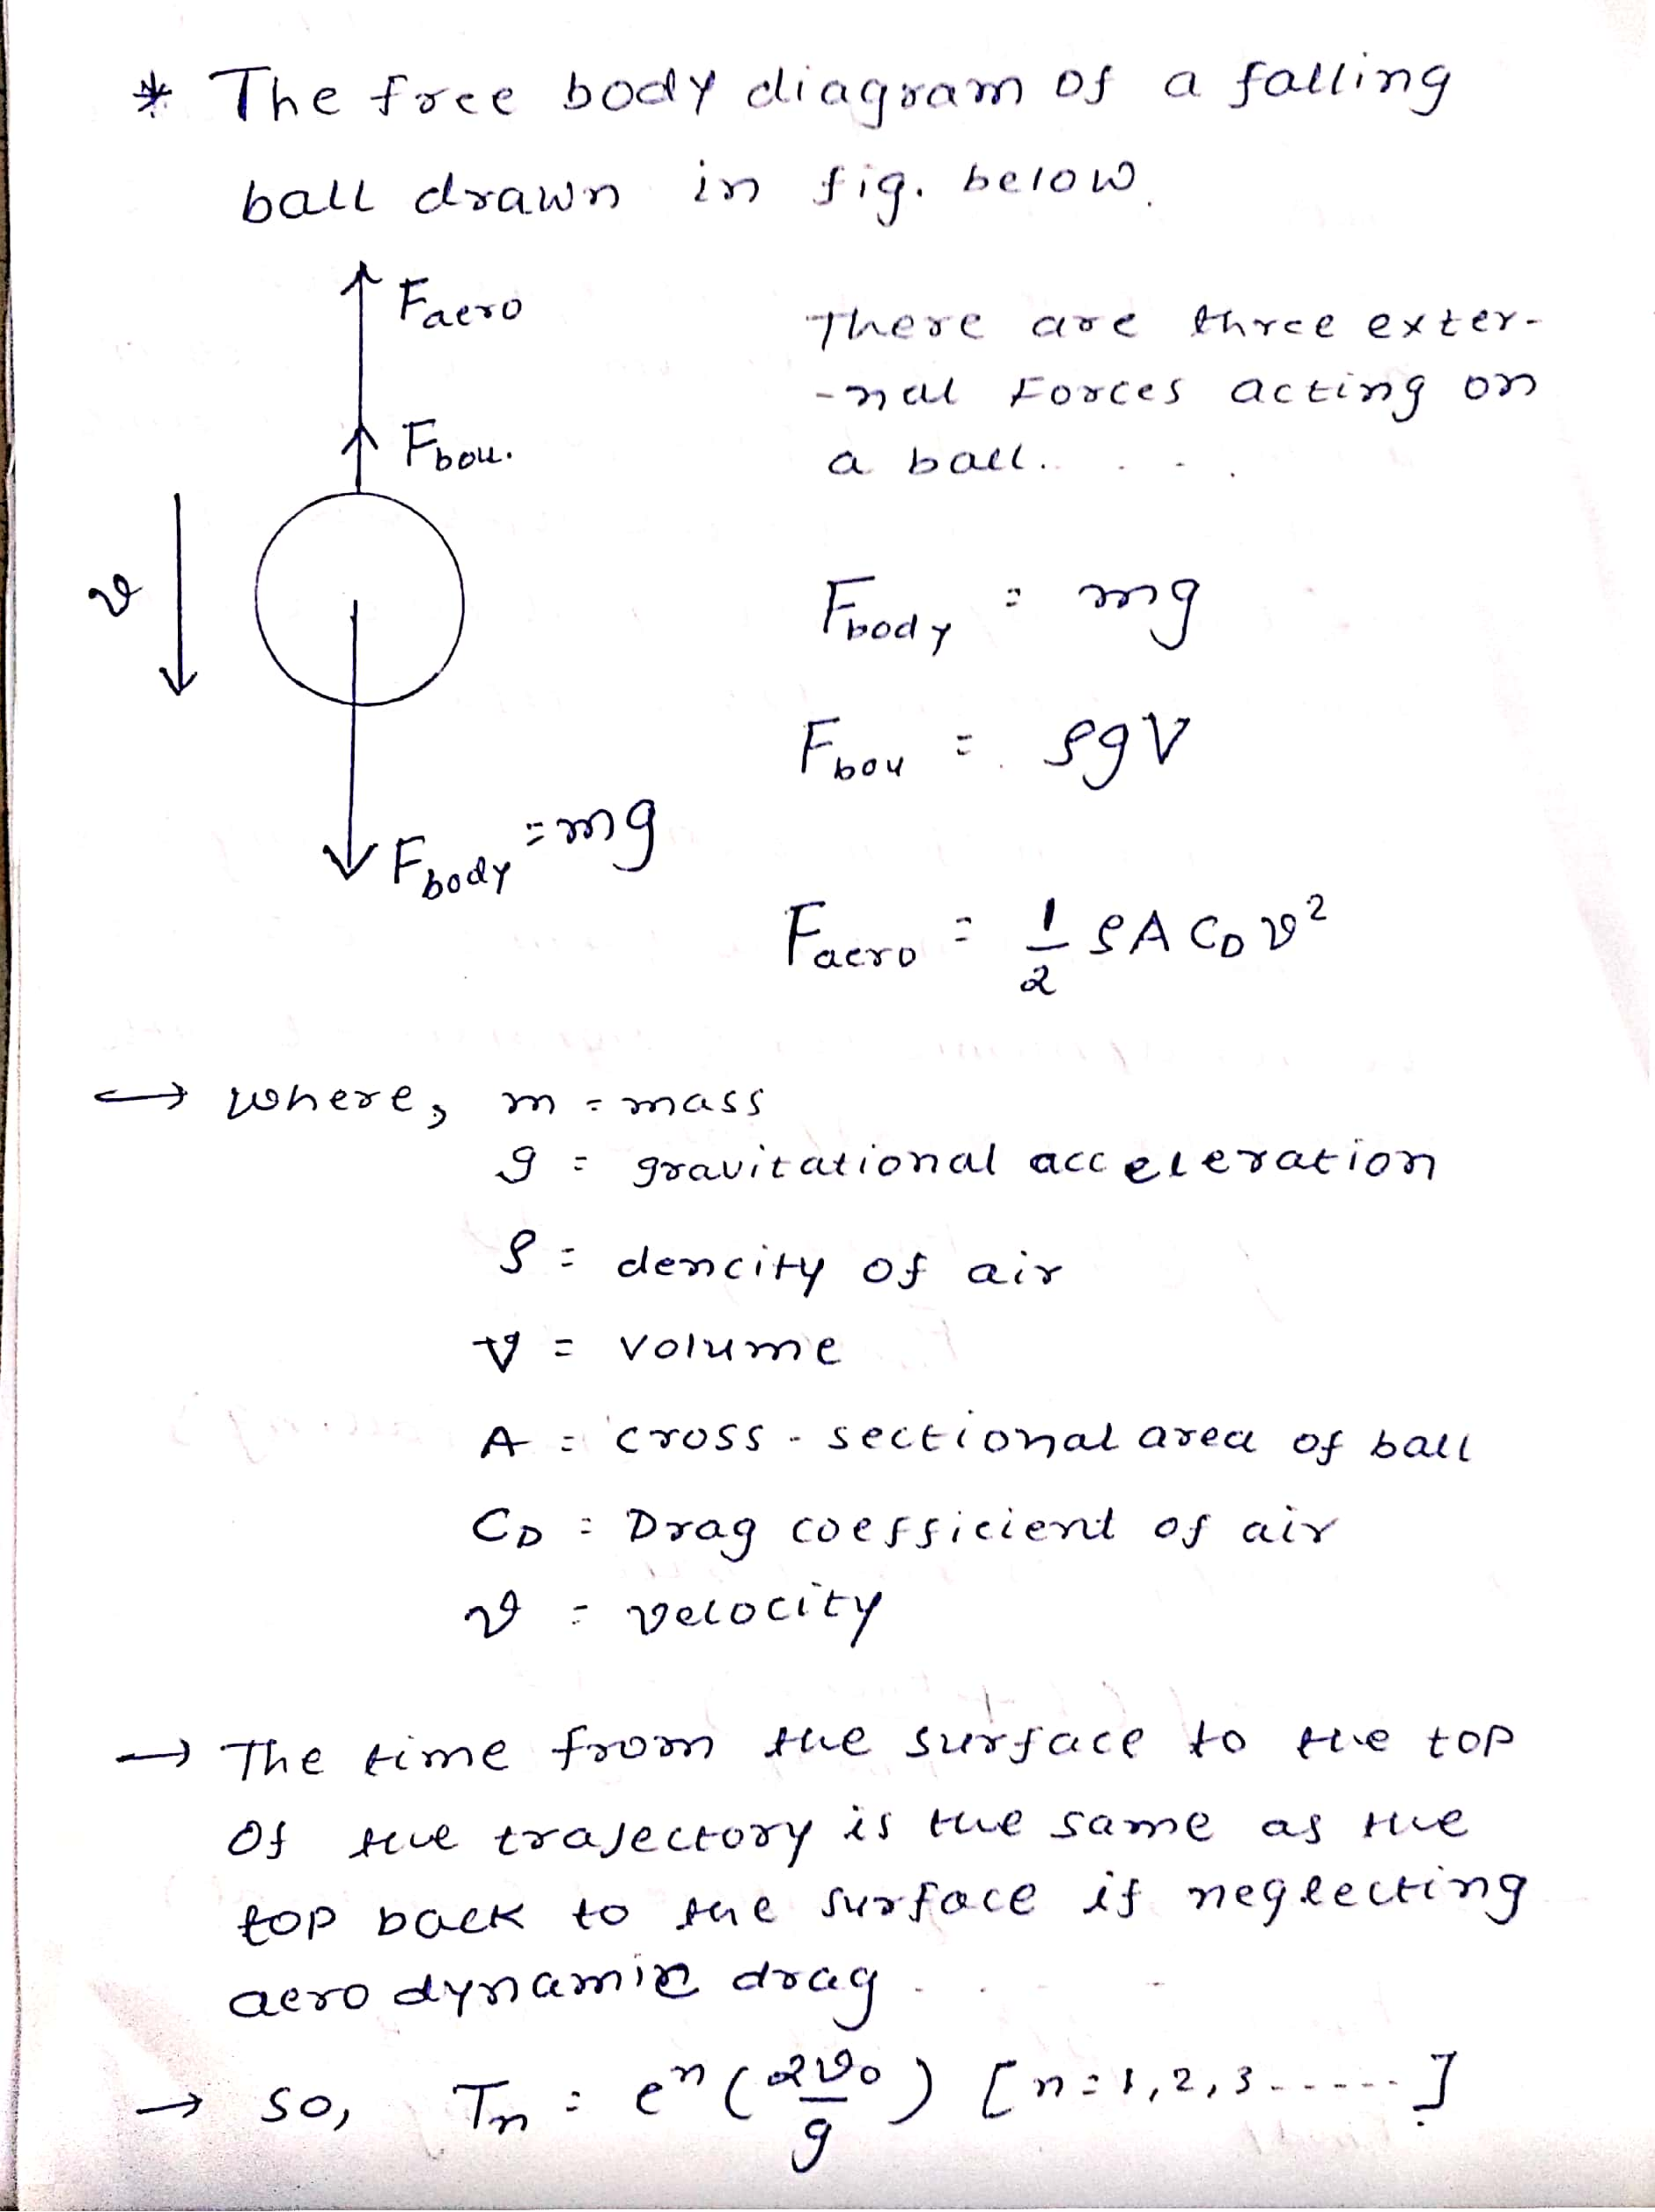 * The free body diagram of a falling
ball drawn in fig. below.
Faero
There are three exter-
-nal Forces acting on
a ball.
Fbou.
v
Fbody = mg
Fbou = ρgV
Fbody = mg
Faero = 1/2 ρACDv²
→ where, m = mass
g = gravitational acceleration
ρ = dencity of air
V = volume
A = cross-sectional area of ball
CD = Drag coefficient of air
v = velocity
→ The time from the surface to the top
of the trajectory is the same as the
top back to the surface if neglecting
aero dynamic drag.
→ so, Tn = eⁿ (2v₀/g) [n=1,2,3......]